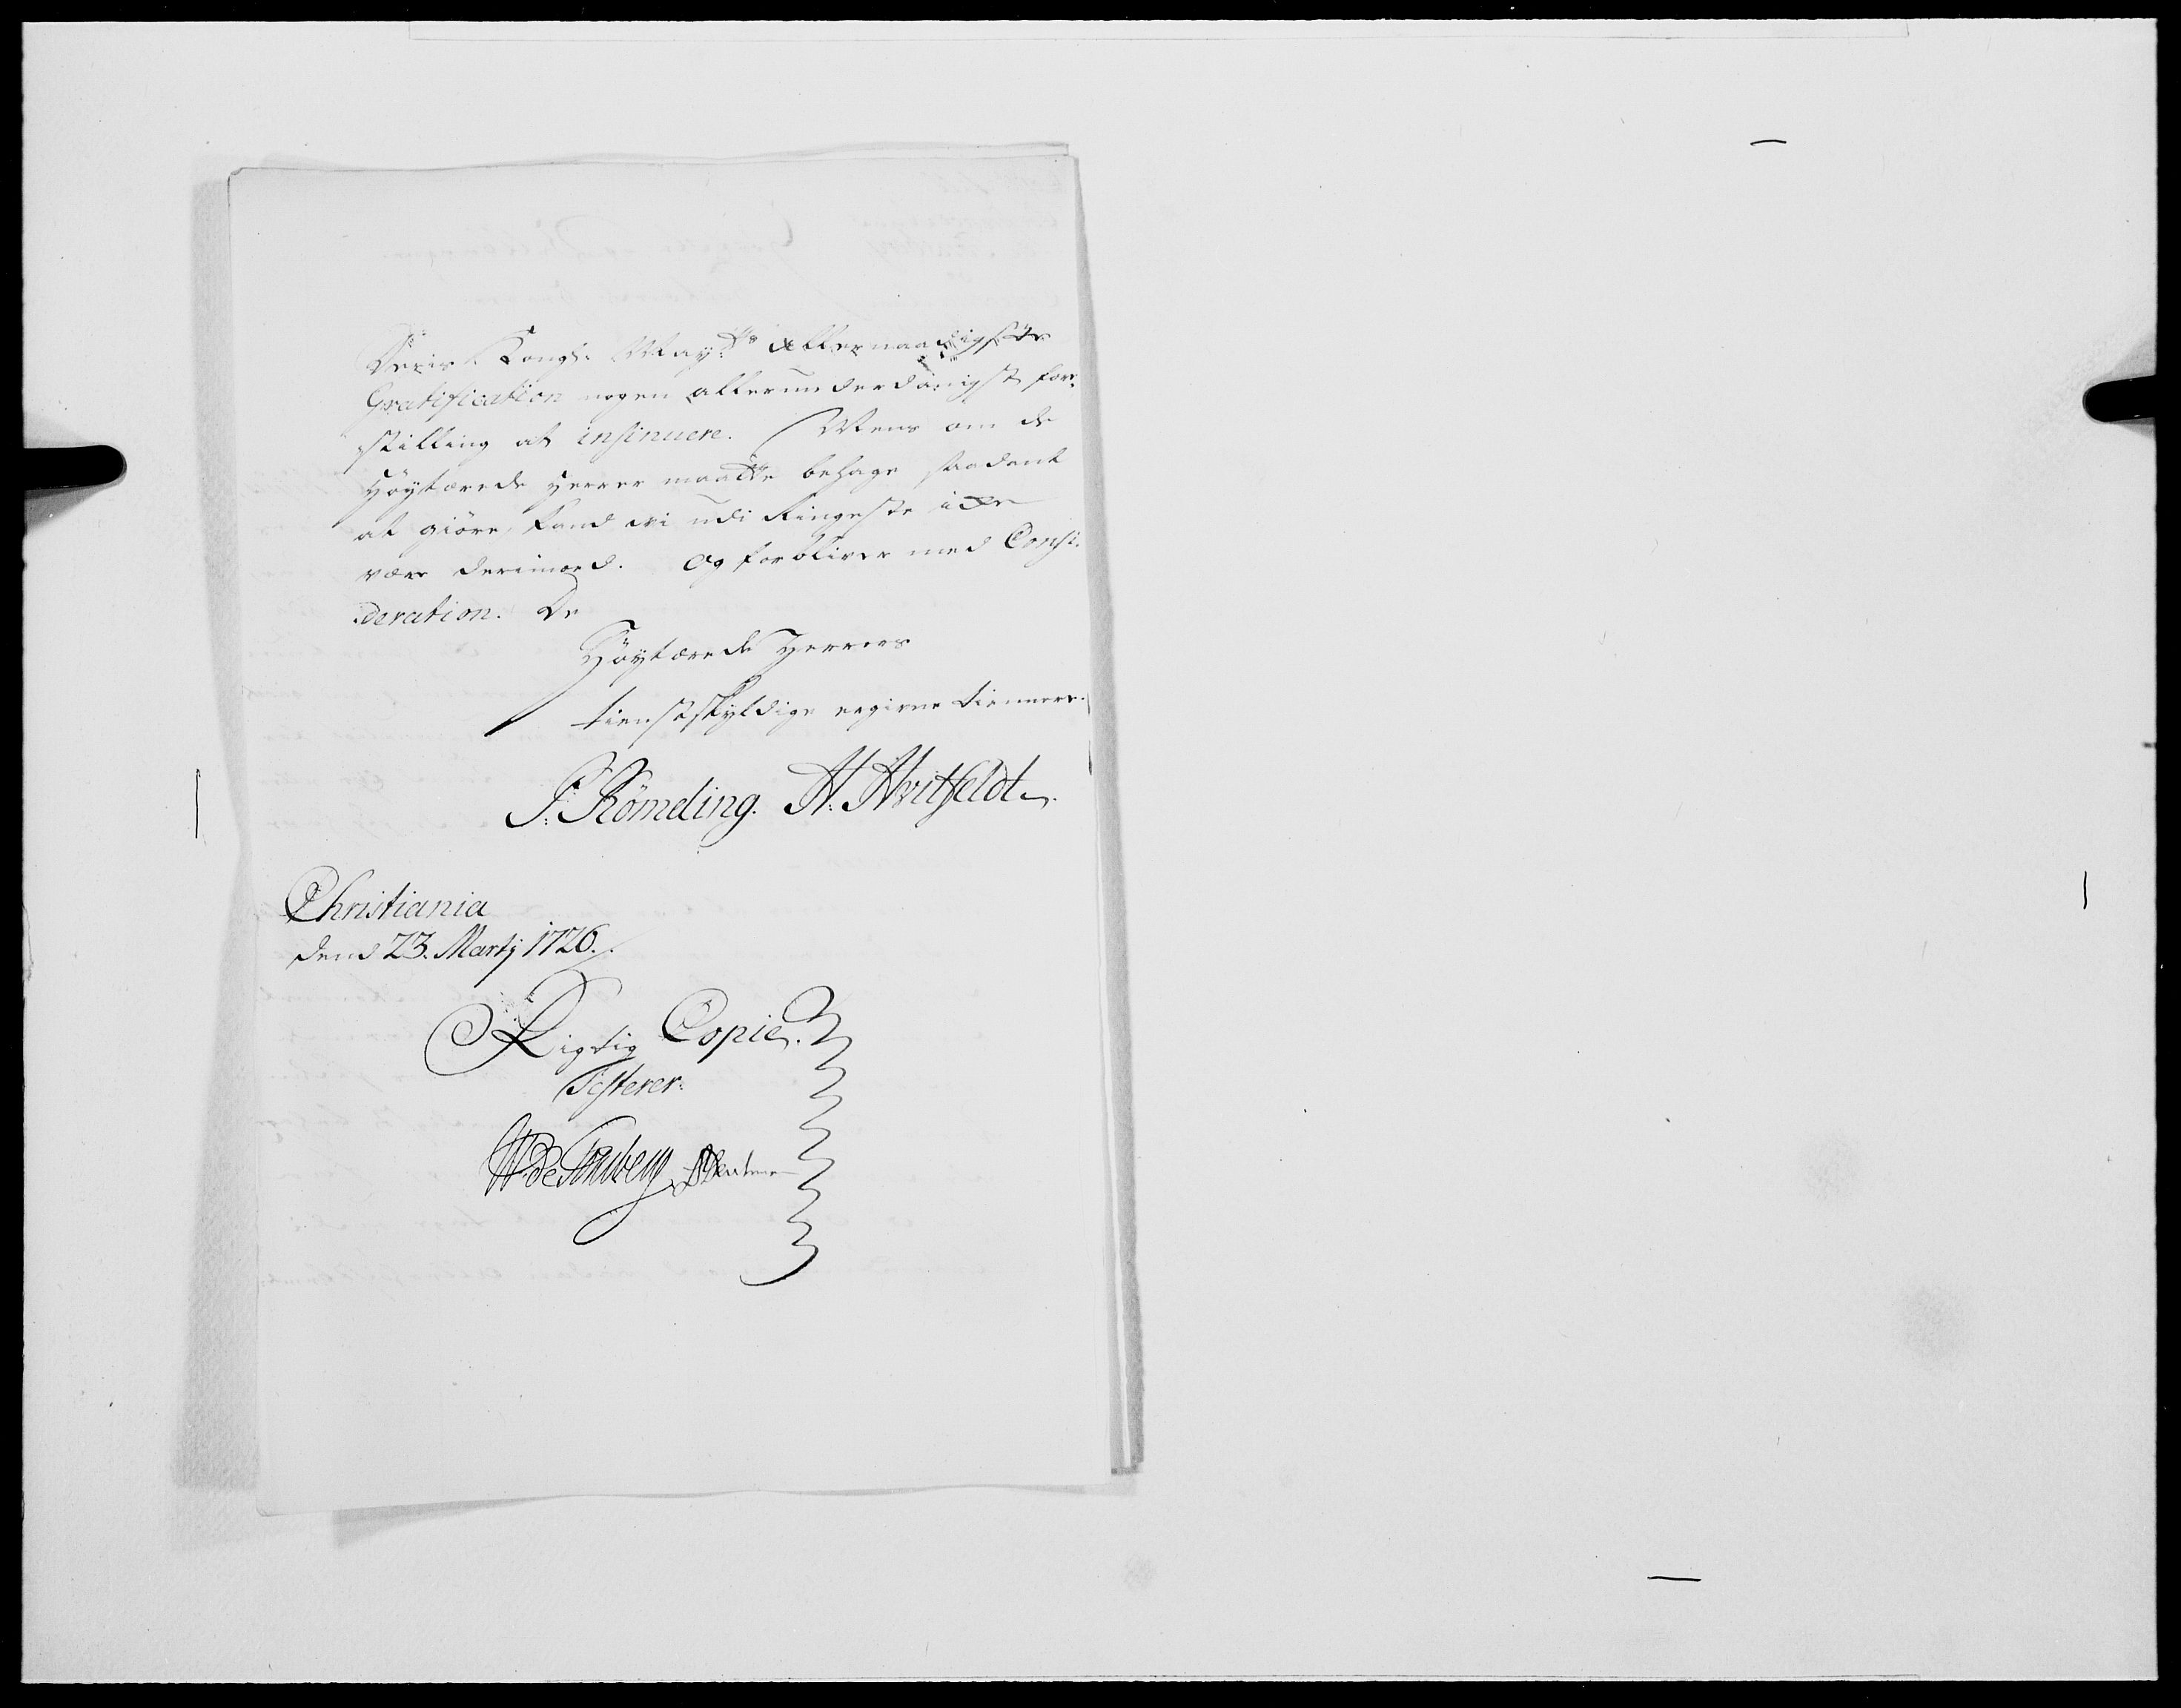 Deris Kongl: May:tts Allernaadigste
Gratification nogen allerunderdanigst for-
stilling at insinuere. Mens om de
Høytærede Herrer maatte behage saadant
at giöre, kand vi udi Ringeste icke
være derimoed. Og forbliver med Consi-
deration. De
Høytærede Herrers
tienstskyldige ergivne tiennere.
P: Römeling. H: Hvitfeldt.
Christiania
dend 23. Martj 1726.
Rigtig Copie.
Testerer.
W: de Tonsberg